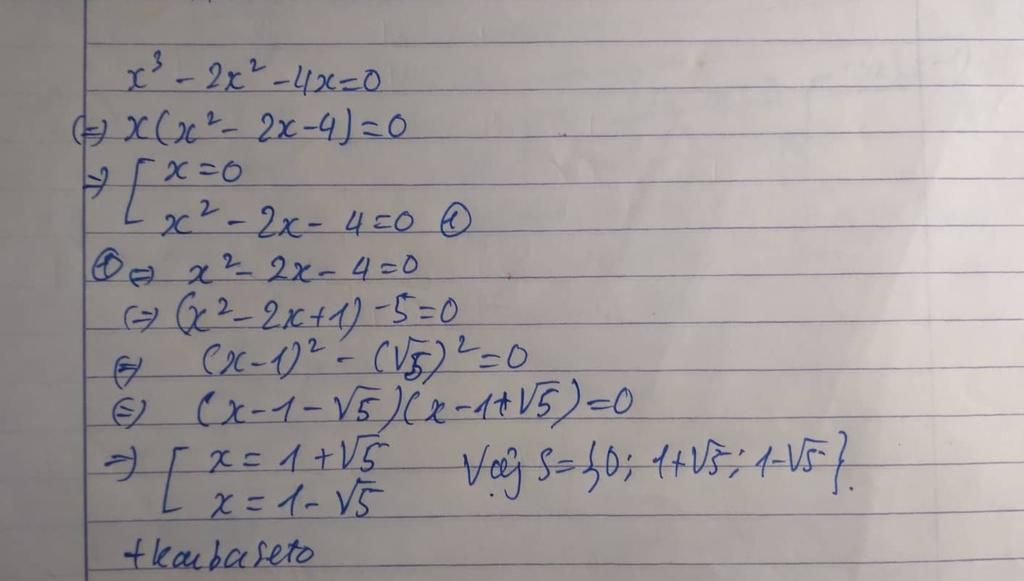 x³ - 2x² - 4x = 0
(=) x(x² - 2x - 4) = 0
=> [ x = 0
x² - 2x - 4 = 0 ①
① (=) x² - 2x - 4 = 0
(=) (x² - 2x + 1) - 5 = 0
(=) (x - 1)² - (√5)² = 0
(=) (x - 1 - √5)(x - 1 + √5) = 0
=> [ x = 1 + √5
x = 1 - √5
Vậy S = {0; 1 + √5; 1 - √5}.